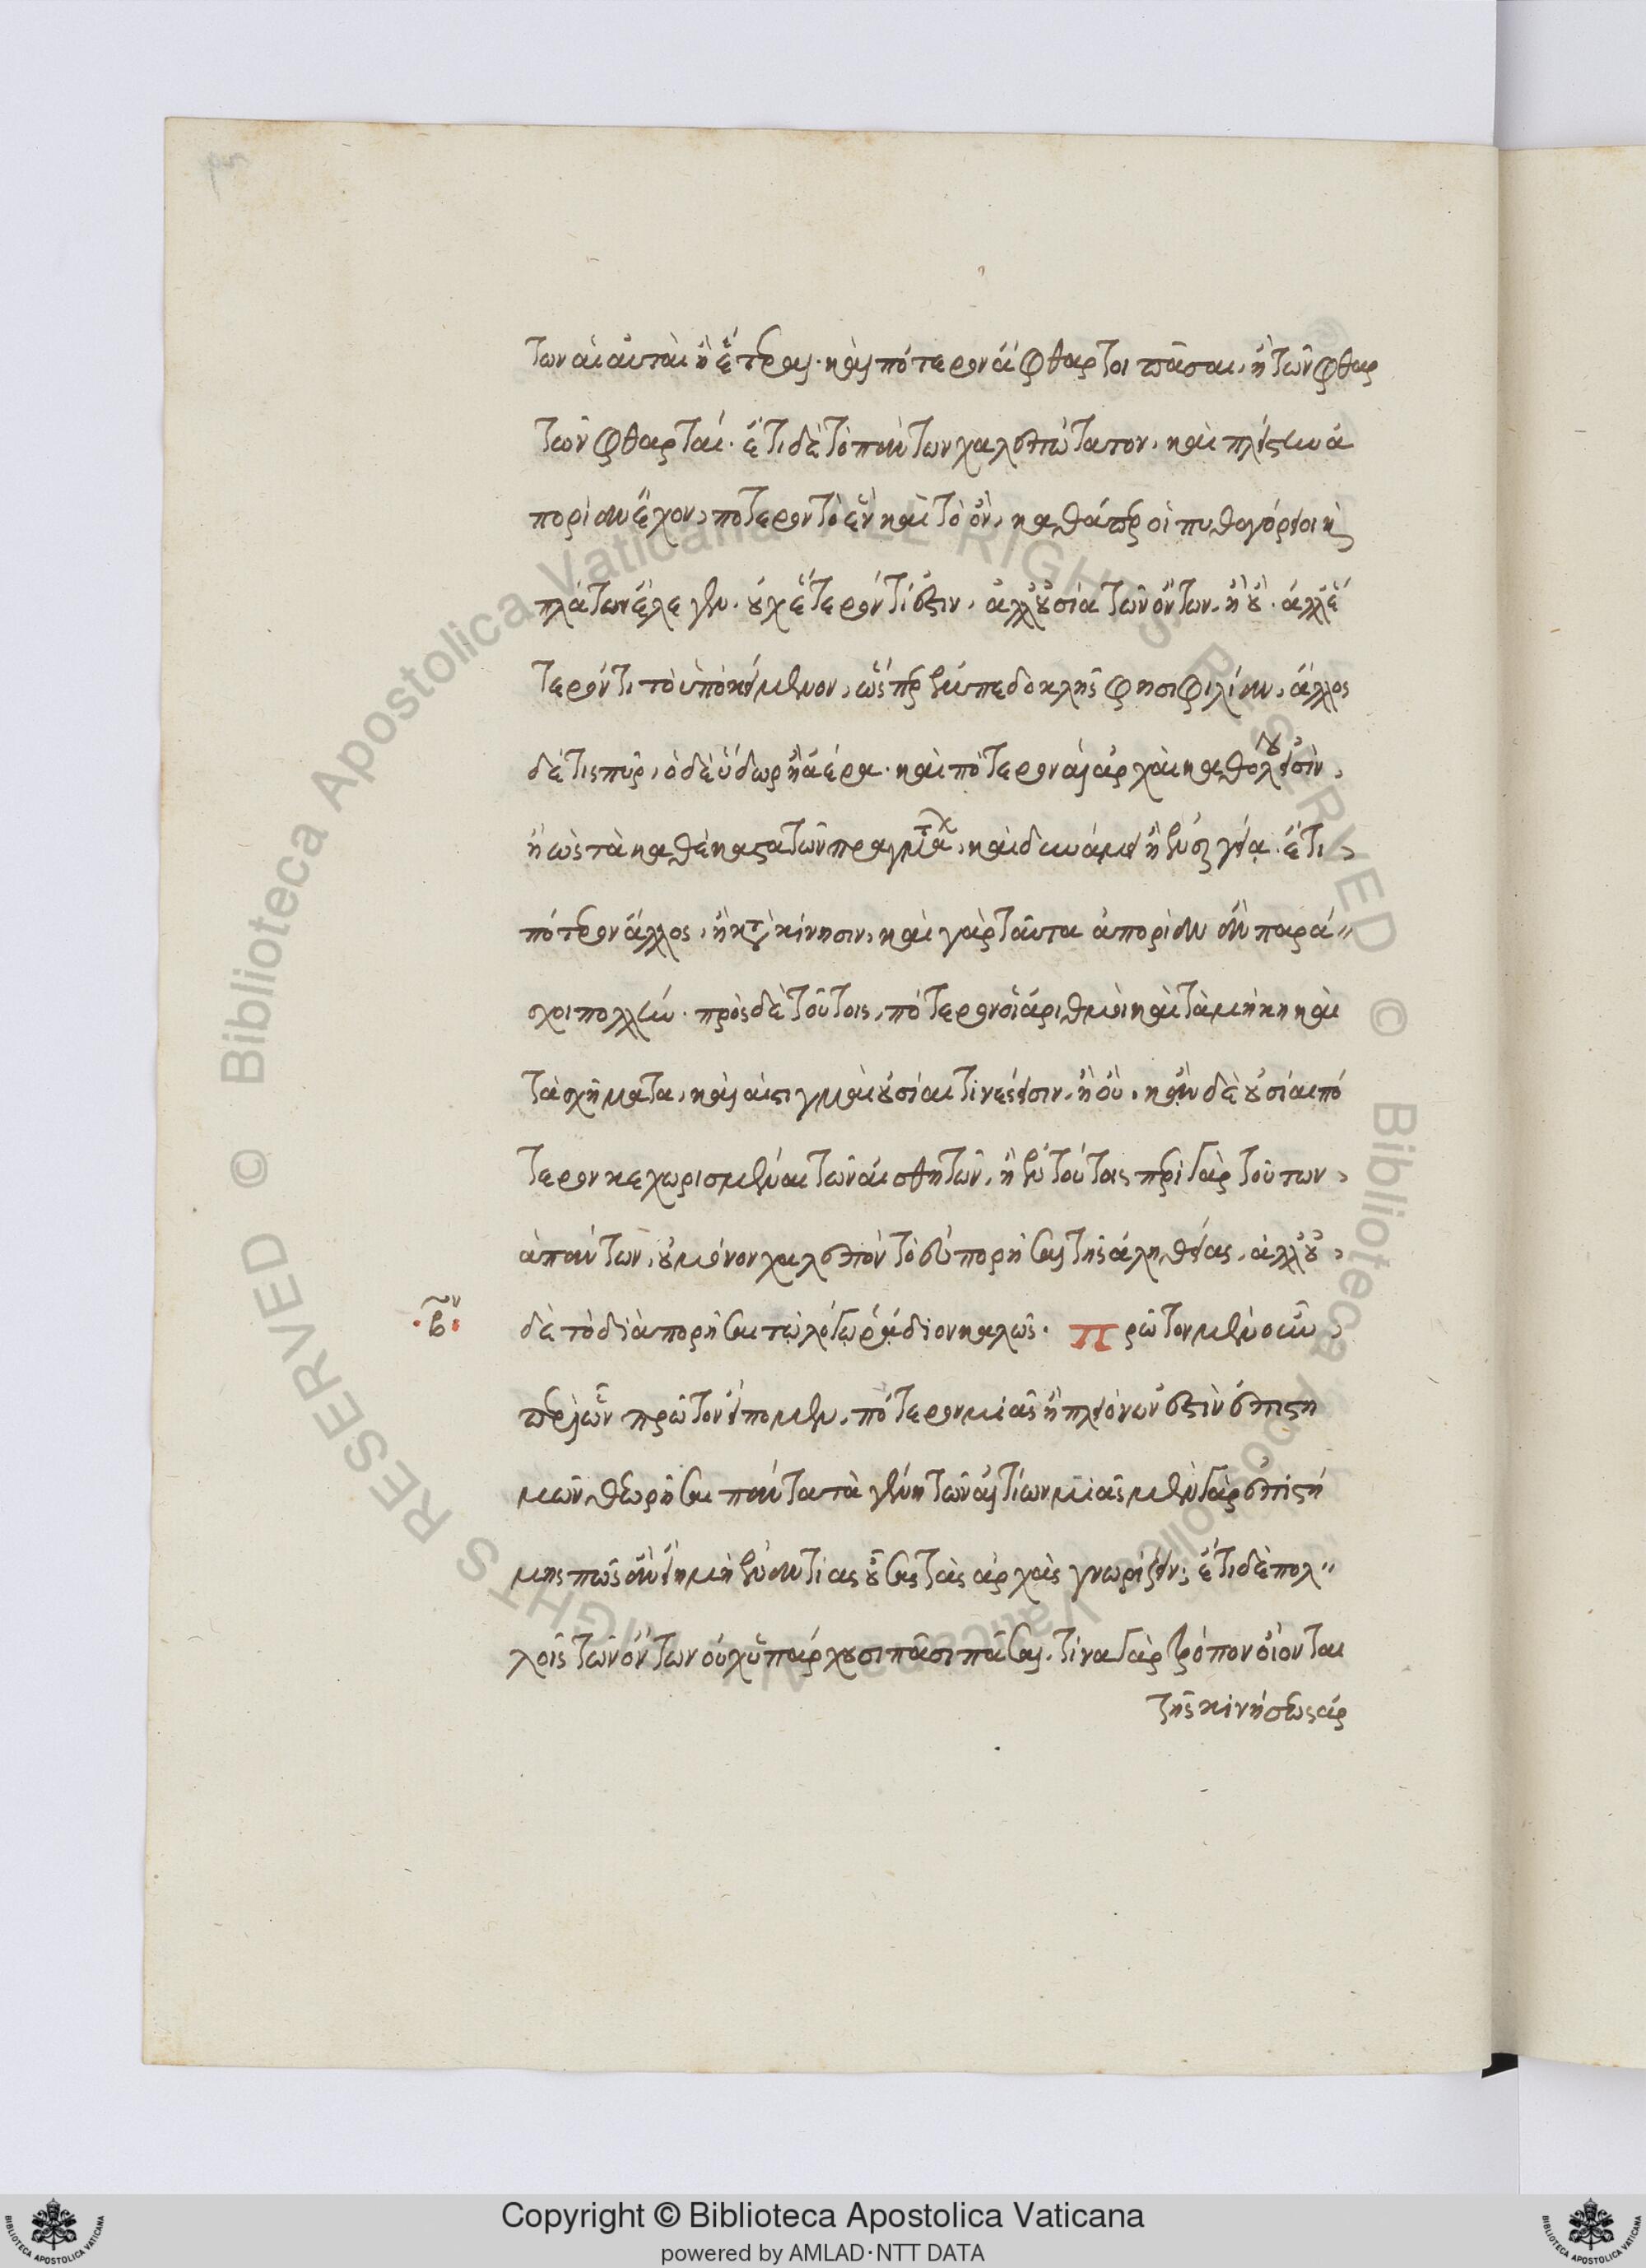 των αἱ αὐταὶ ἢ ἕτεραι· καὶ πότερον ἄφθαρτοι πᾶσαι, ἢ τῶν φθαρ
τῶν φθαρταί· ἔτι δὲ τὸ πάντων χαλεπώτατον, καὶ πλείστην ἀ
πορίαν ἔχον, πότερον τὸ ἓν καὶ τὸ ὄν, καθάπερ οἱ πυθαγόρειοι κ
πλάτων ἔλεγεν. οὐχ ἕτερόν τί ἐστιν, ἀλλ' οὐσία τῶν ὄντων, ἢ οὔ. ἀλλ' ἕ
τερόν τι τὸ ὑποκείμενον, ὥσπερ ἐμπεδοκλῆς φησι φιλίαν, ἄλλος
δέ τις πῦρ, ὁ δὲ ὕδωρ ἢ ἀέρα. καὶ πότερον αἱ ἀρχαὶ καθόλου εἰσὶν,
ἢ ὡς τὰ καθέκαστα τῶν πραγμάτων, καὶ δυνάμει ἢ ἐνεργείᾳ. ἔτι
πότερον ἄλλος, ἢ κατὰ κίνησιν, καὶ γὰρ ταῦτα ἀπορίαν ἂν παρά
σχοι πολλήν. πρὸς δὲ τούτοις, πότερον οἱ ἀριθμοὶ καὶ τὰ μήκη καὶ
τὰ σχήματα, καὶ αἱ στιγμαὶ οὐσίαι τινές εἰσιν, ἢ οὔ. κἂν δὲ οὐσίαι πό
τερον κεχωρισμέναι τῶν αἰσθητῶν, ἢ ἐν τούτοις περὶ γὰρ τούτων
ἁπάντων, οὐ μόνον χαλεπὸν τὸ εὐπορῆσαι τῆς ἀληθείας, ἀλλ' οὐ
δὲ τὸ διαπορῆσαι τῷ λόγῳ ῥᾴδιον καλῶς. πρῶτον μὲν οὖν
·βον·
περὶ ὧν πρῶτον εἴπομεν, πότερον μιᾶς ἢ πλειόνων ἐστὶν ἐπιστη
μῶν θεωρῆσαι πάντα τὰ γένη τῶν αἰτίων μιᾶς μὲν γὰρ ἐπιστή
μης πῶς ἂν εἴη μὴ ἐναντίας οὔσας τὰς ἀρχὰς γνωρίζειν; ἔτι δὲ πολ
λοῖς τῶν ὄντων οὐχ ὑπάρχουσι πᾶσι πᾶσαι, τίνα γὰρ τρόπον οἷόν ται
τῆς κινήσεως ἀρ
Copyright © Biblioteca Apostolica Vaticana
powered by AMLAD·NTT DATA
© Biblioteca Apostolica Vaticana ALL RIGHTS RESERVED
© Biblioteca Apostolica Vaticana ALL RIGHTS RESERVED